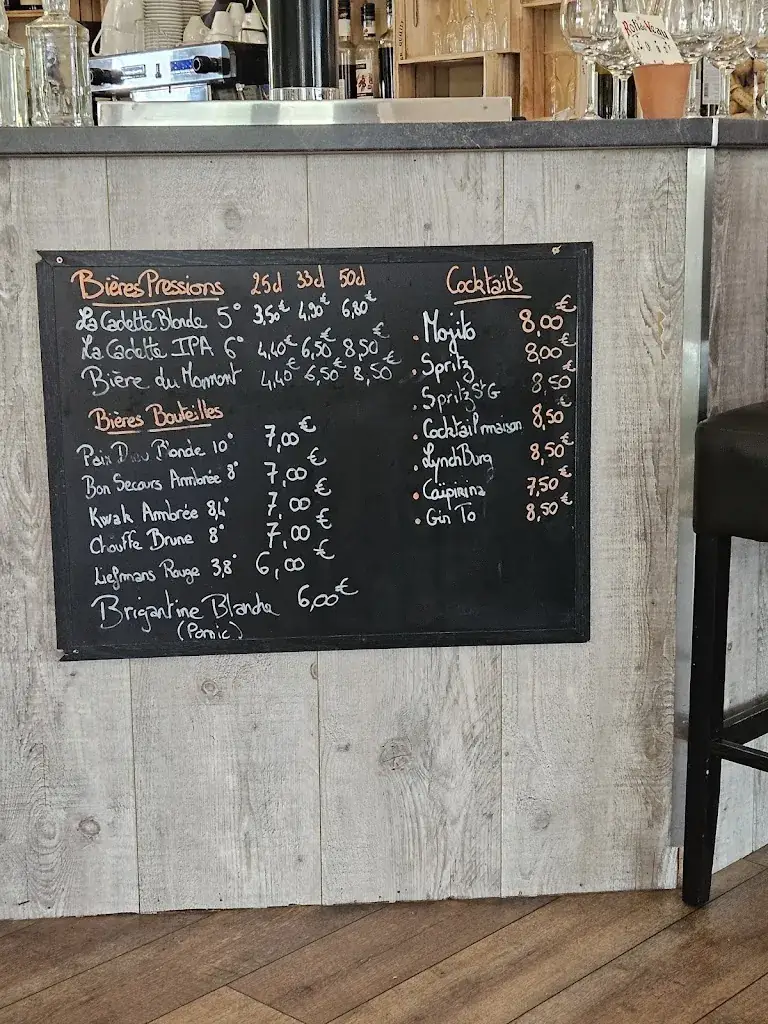 Bières Pressions 25cl 33cl 50cl
La Cadette Blonde 5° 3,50€ 4,90€ 6,80€
La Cadette IPA 6° 4,40€ 6,50€ 8,50€
Bière du Moment 4,40€ 6,50€ 8,50€
Bières Bouteilles
Paix Dieu Blonde 10° 7,00€
Bon Secours Ambrée 8° 7,00€
Kwak Ambrée 8,4° 7,00€
Chouffe Brune 8° 7,00€
Liefmans Rouge 3,8° 6,00€
Brigantine Blanche 6,00€
(Pornic)
Cocktails
• Mojito 8,00€
• Spritz 8,00€
• Spritz StG 8,50€
• Cocktail maison 8,50€
• LynchBurg 8,50€
• Caïpirina 7,50€
• Gin To 8,50€